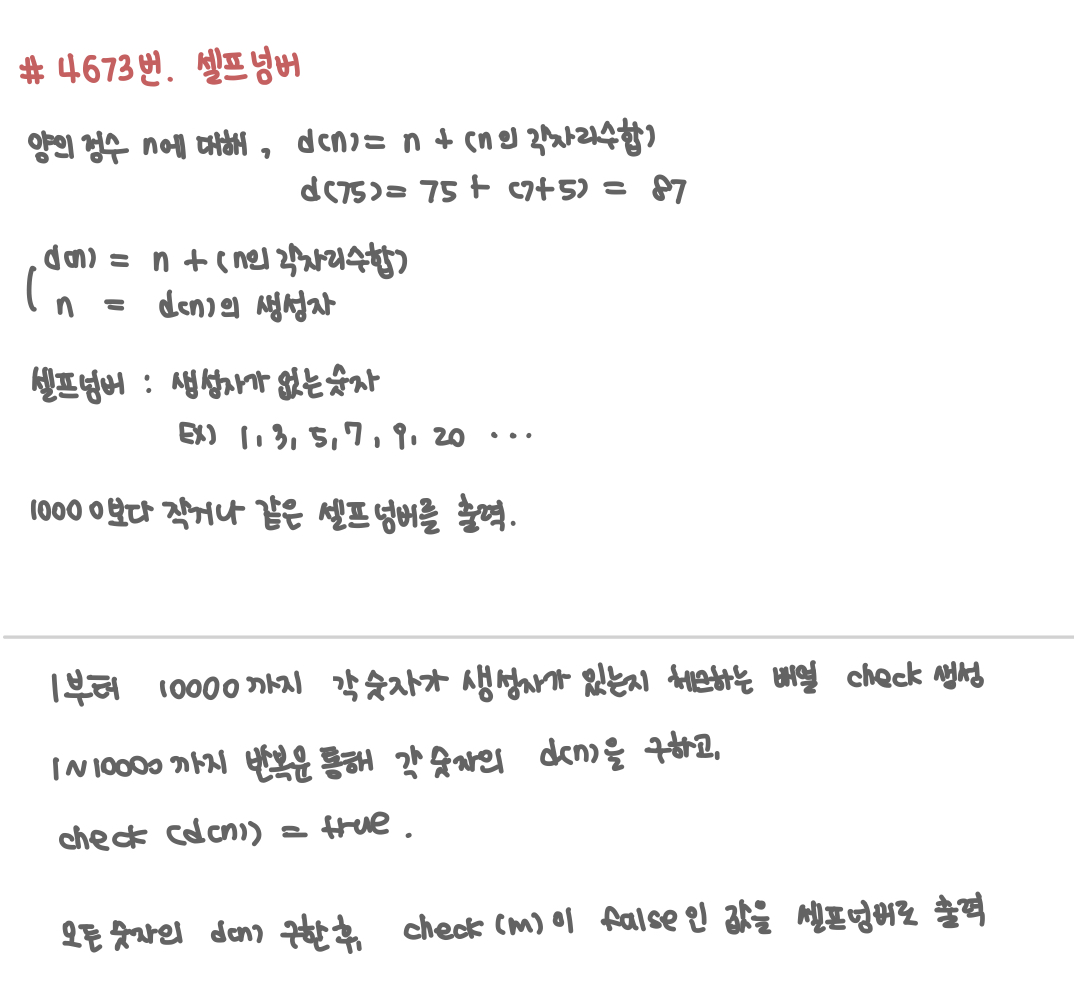 # 4673번. 셀프넘버
양의 정수 n에 대해, d(n) = n + (n의 각자리수합)
d(75) = 75 + (7+5) = 87
d(n) = n + (n의 각자리수합)
n = d(n)의 생성자
셀프넘버 : 생성자가 없는 숫자
EX) 1, 3, 5, 7, 9, 20 ...
10000보다 작거나 같은 셀프넘버를 출력.
1부터 10000까지 각 숫자가 생성자가 있는지 체크하는 배열 check 생성
1~10000까지 반복문을 통해 각 숫자의 d(n)을 구하고,
check (d(n)) = true.
모든 숫자의 d(n) 구한 후, check (m)이 false인 값을 셀프넘버로 출력